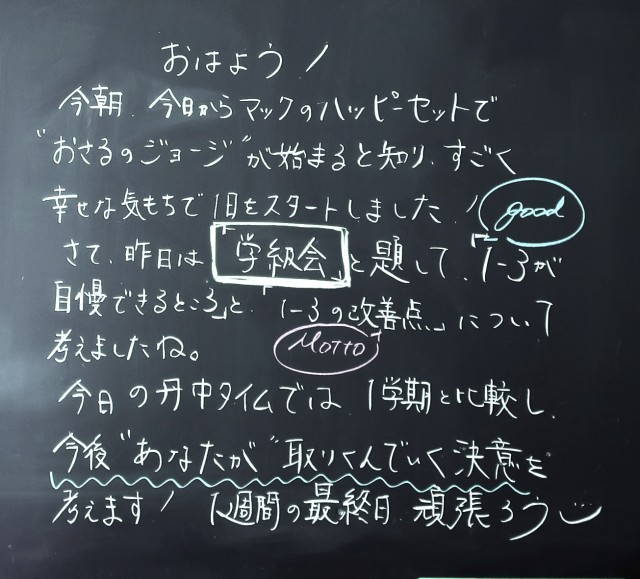 おはよう!
今朝、今日からマックのハッピーセットで
"おさるのジョージ"が始まると知り、すごく
幸せな気もちで1日をスタートしました!
good
さて、昨日は「学級会」と題して、「1-3が
自慢できるところ」と「1-3の改善点」について
MOTTO
考えましたね。
今日の丹中タイムでは1学期と比較し、
今後"あなたが"取りくんでいく決意を
考えます! 1週間の最終日、頑張ろう